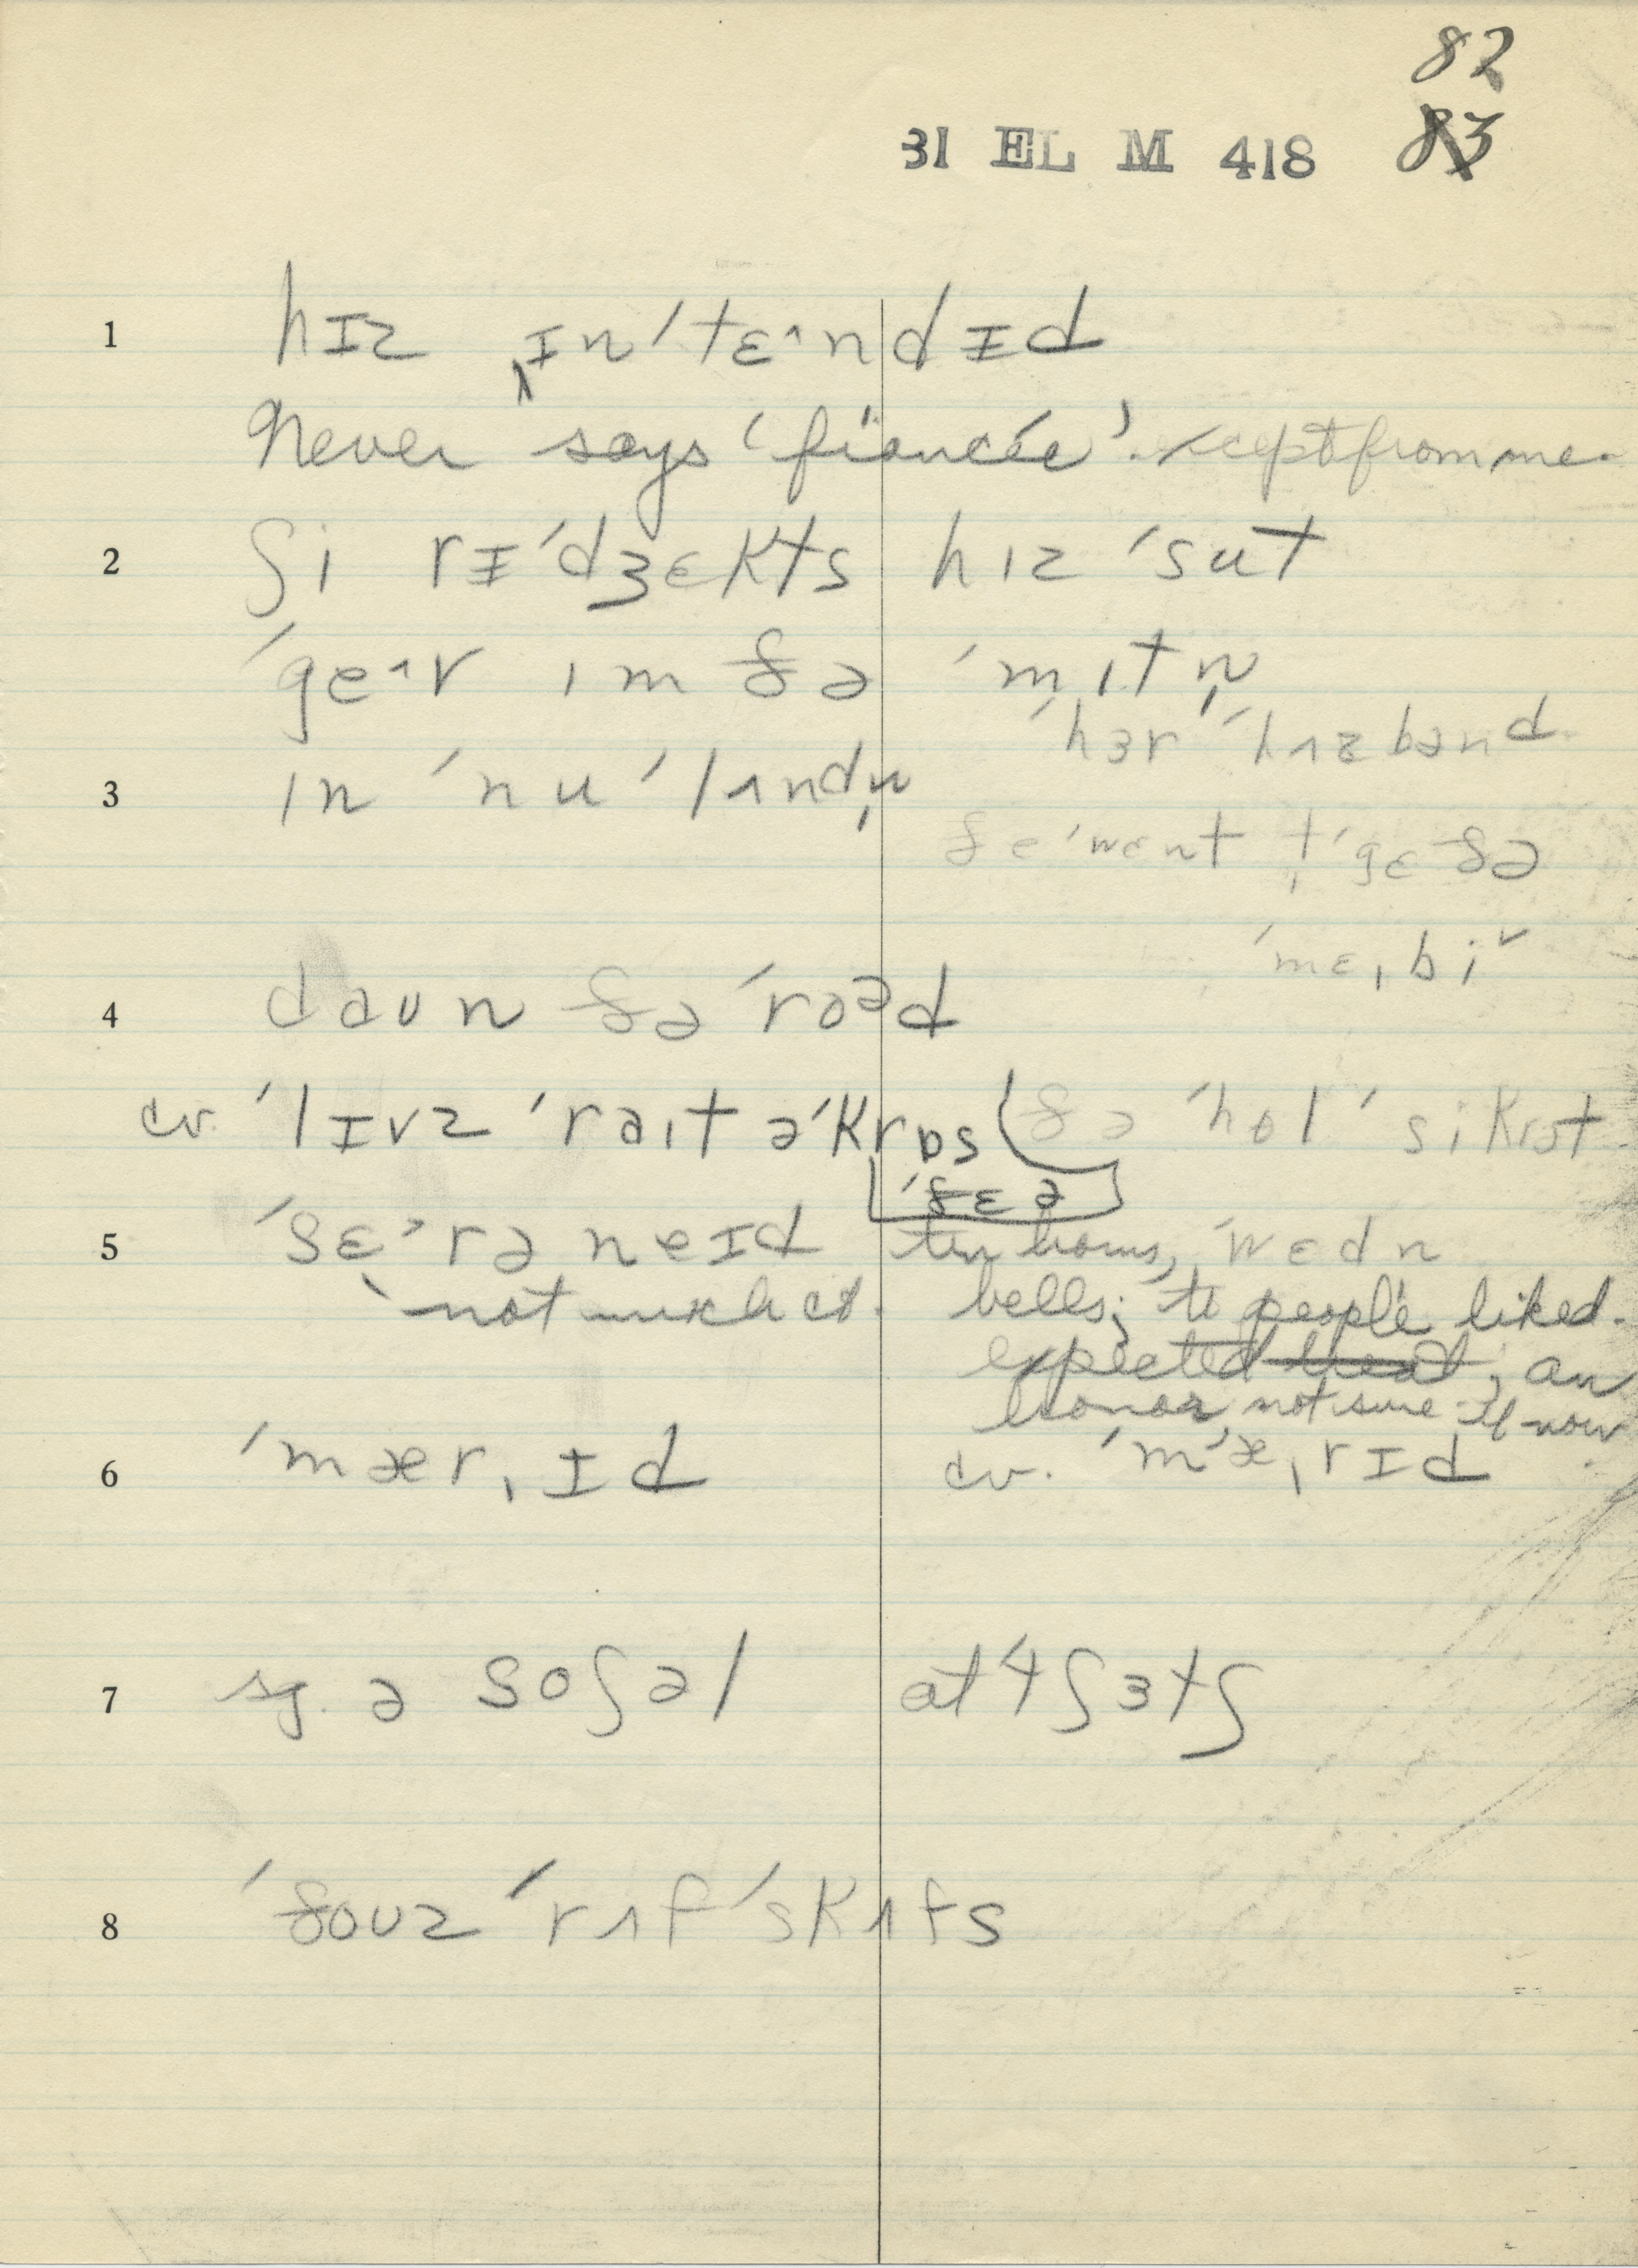 82
31 EL M 418 83
1 hɪz ˌɪn'tɛ^ndɪd
Never says 'fiancée'. except from me.
2 ʃi rɪ'dʒɛkts hɪz 'sut
'ge^v ɪm ðə 'mɪtn̩
'hɜr 'hʌzbənd.
3 ɪn 'nu 'lʌndn̩
ðe 'wɛnt t̩ 'gɛ ðə
'mɛˌbiˇ
4 daʊn ðə 'roᵊd
cv. 'lɪvz 'raɪt ə'krɒs ðə 'hol 'sikrət
'ðɛə
5 'sɛ^rəneɪd tin horns, 'wɛdn
not much cv. bells; to people liked.
expected treat, an
honor not sure if now
6 'mærˌɪd cv. 'm'æˌrɪd
7 sg. ə soʃəl at 4 ʃɜtʃ
8 'ðoʊz 'rʌf 'skʌfs